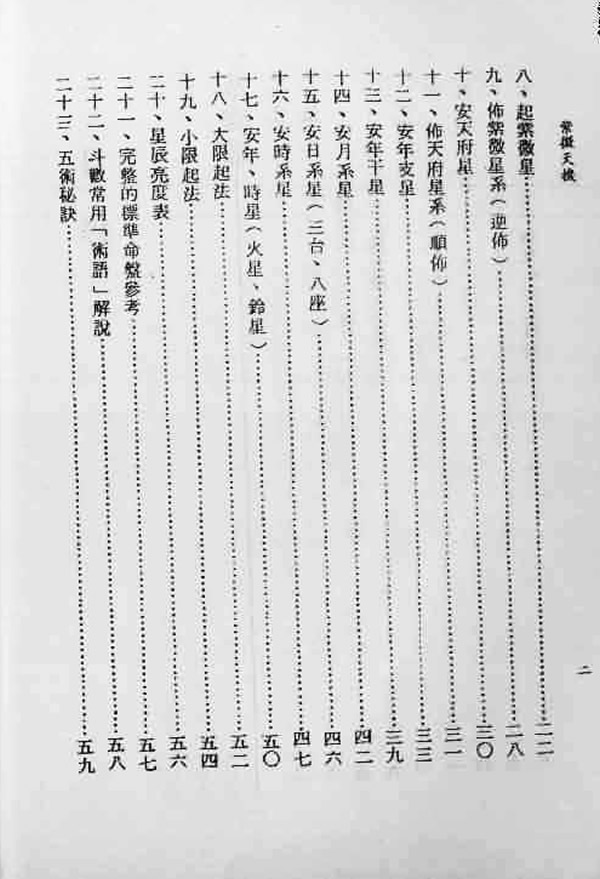 紫微天機
二
八、起紫微星……二二
九、佈紫微星系（逆佈）……二八
十、安天府星……三〇
十一、佈天府星系（順佈）……三一
十二、安年支星……三三
十三、安年干星……三九
十四、安月系星……四二
十五、安日系星（三台、八座）……四六
十六、安時系星……四七
十七、安年、時星（火星、鈴星）……五〇
十八、大限起法……五二
十九、小限起法……五四
二十、星辰亮度表……五六
二十一、完整的標準命盤參考……五七
二十二、斗數常用「術語」解說……五八
二十三、五術秘訣……五九